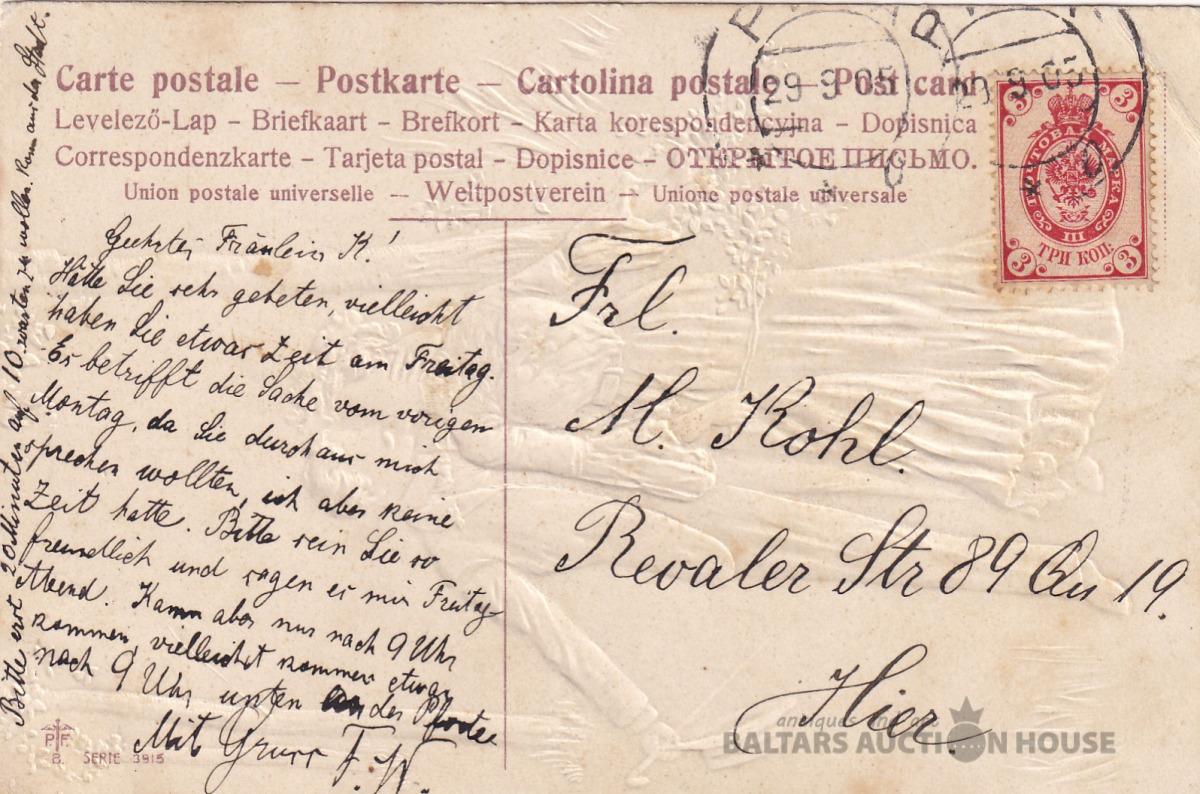 Carte postale – Postkarte – Cartolina postale – Post card
Levelező-Lap – Briefkaart – Brefkort – Karta korespondencyjna – Dopisnica
Correspondenzkarte – Tarjeta postal – Dopisnice – ОТКРЫТОЕ ПИСЬМО.
Union postale universelle – Weltpostverein – Unione postale universale
29 9 05
29 9 05
3 3
ПОЧТОВАЯ МАРКА
III
ТРИ КОП.
3 3
Geehrtes Fräulein K!
Hätte Sie sehr gebeten, vielleicht
haben Sie etwas Zeit am Freitag.
Es betrifft die Sache vom vorigen
Montag, da Sie durchaus mich
sprechen wollten, ich aber keine
Zeit hatte. Bitte sein Sie so
freundlich und sagen es mir Freitag
Abend. Kann aber nur nach 9 Uhr
kommen, vielleicht kommen etwas
nach 9 Uhr unten an der Pforte
Mit Gruss F. W.
Bitte erst 20 Minuten auf 10 warten zu wollen. Komm aus der Stadt.
Frl.
M. Kohl.
Revaler Str 89 Qu 19.
Hier.
P.F.
B. SERIE 3915
antiques and art
BALTARS AUCTION HOUSE